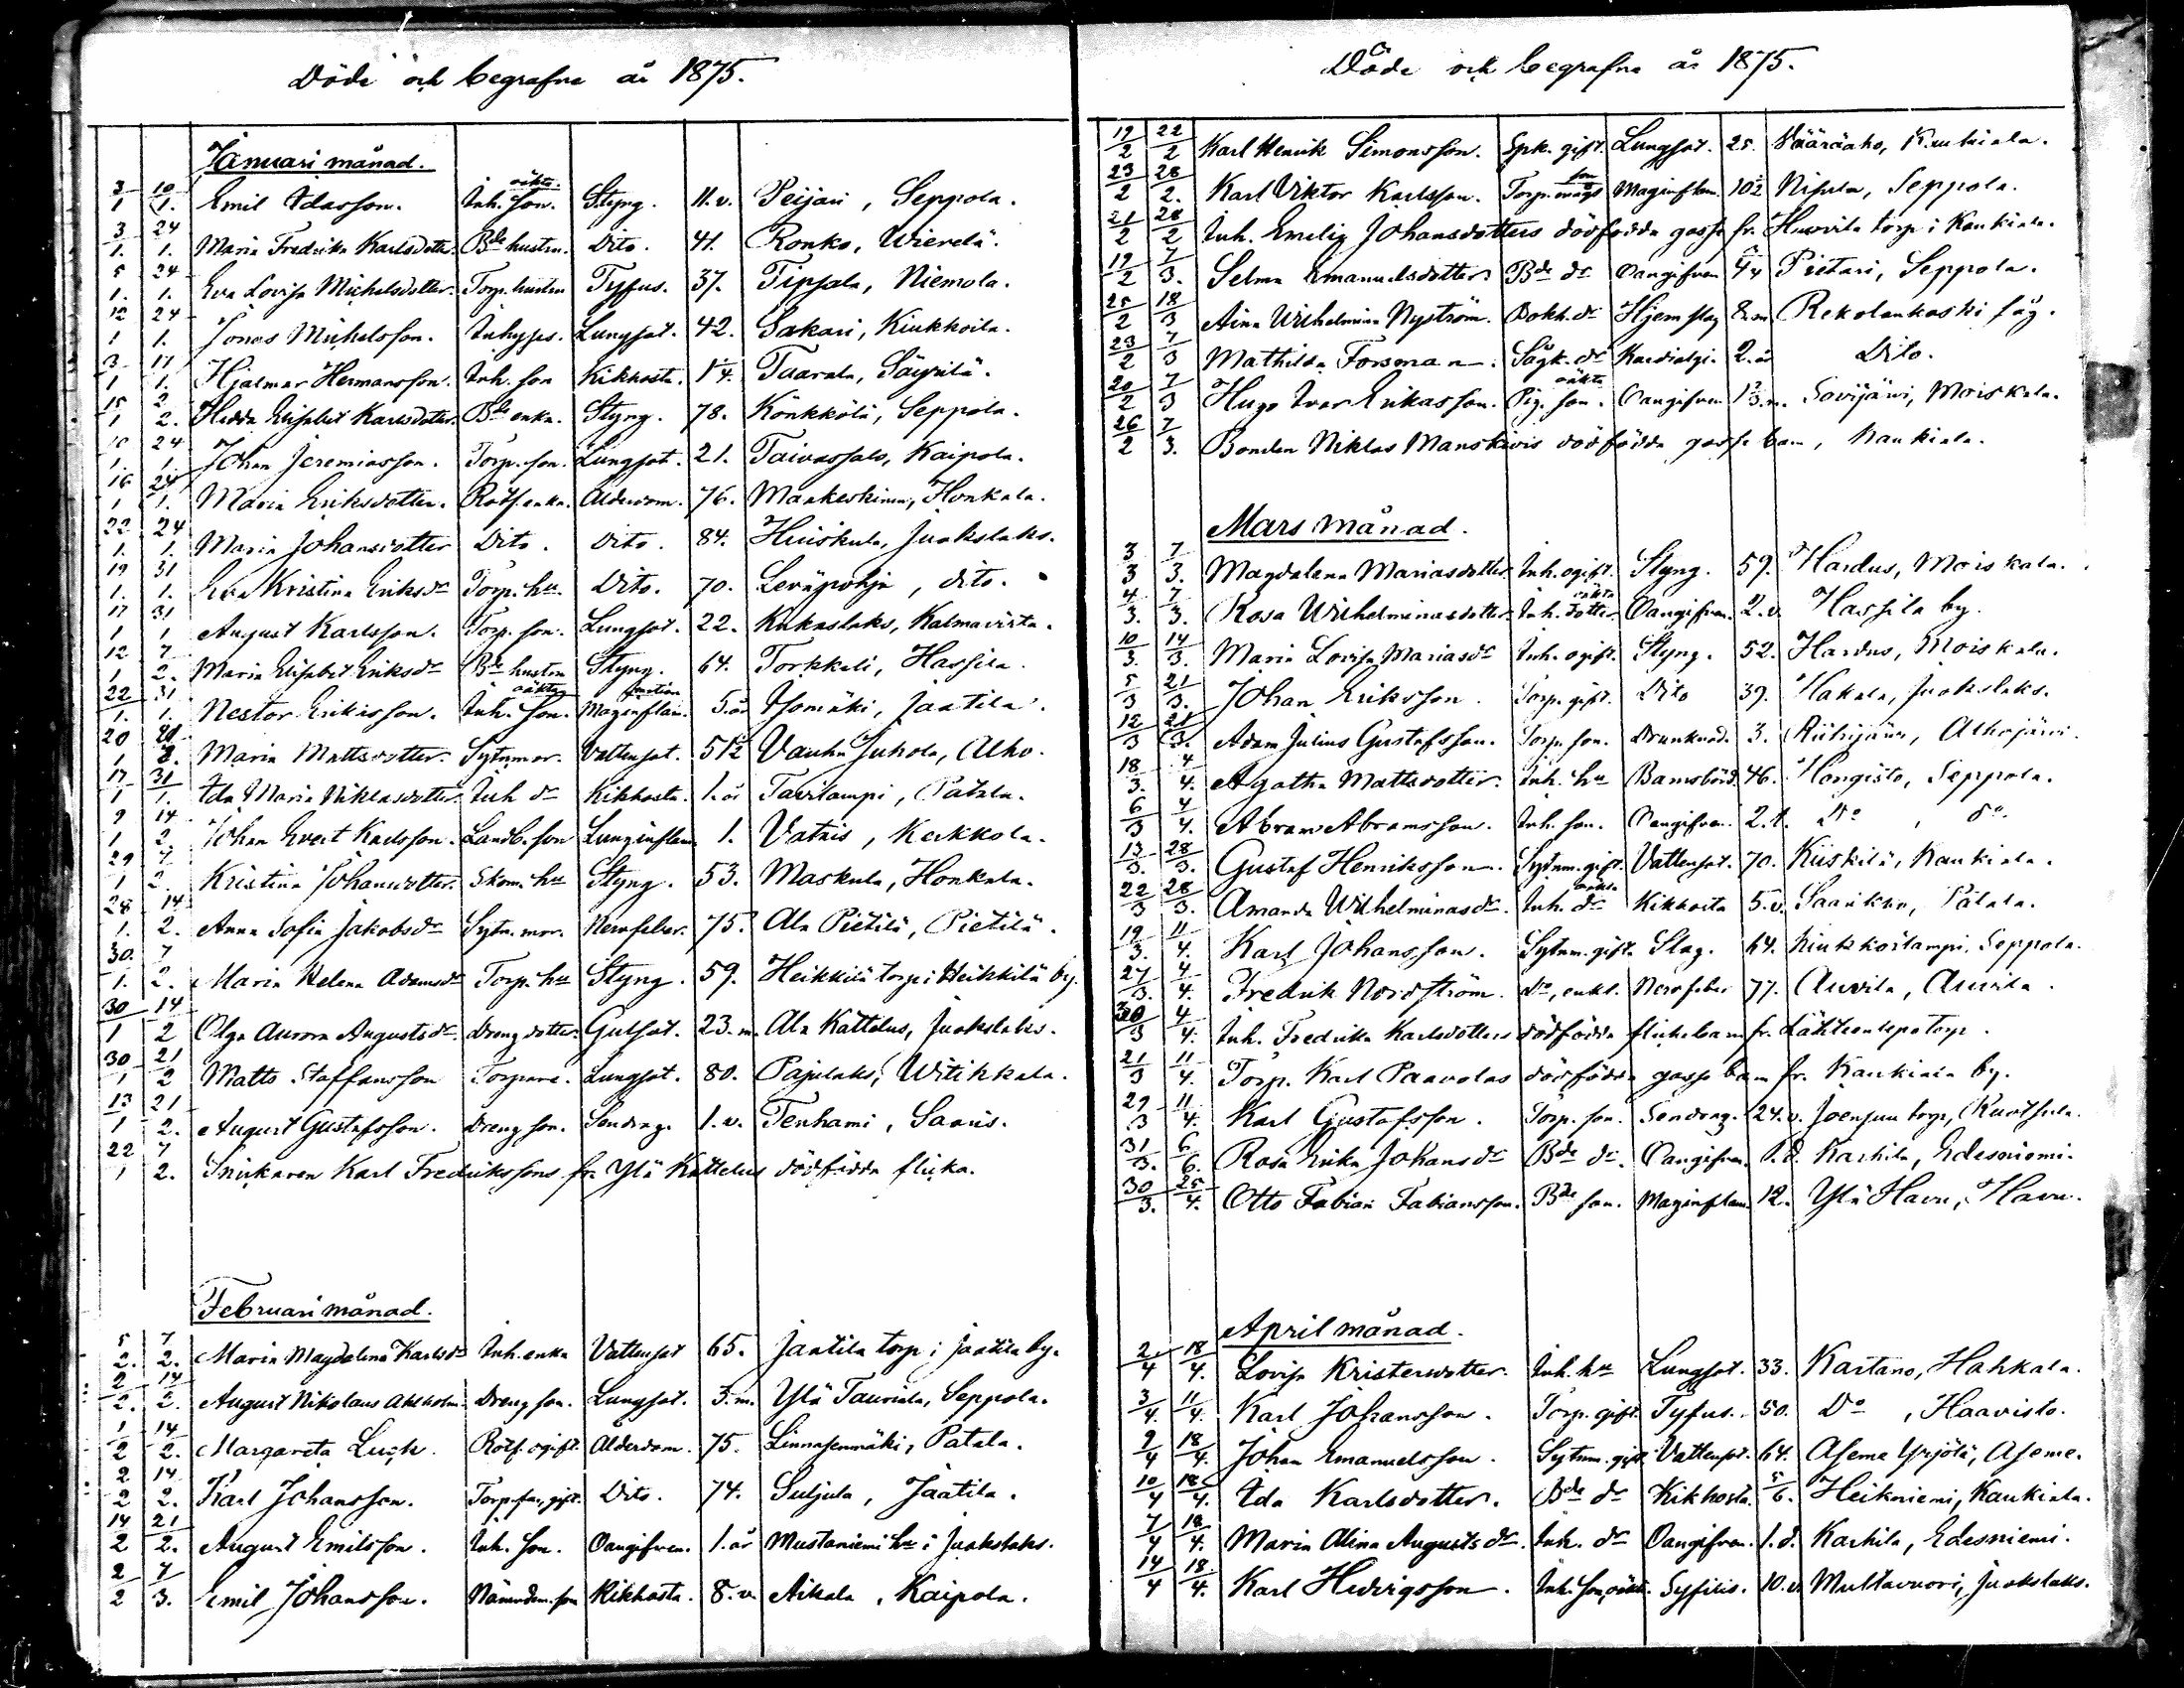 Döde och begrafne år 1875.
Januari månad.
3/1 10/1. Emil Idasson. Inh. oäkta son. Styng. 11.v. Peijari, Seppola.
3/1. 24/1. Maria Fredrika Karlsdotter. Bde hustru. Dito. 41. Ronko, Wierelä.
5/1. 24/1. Eva Lovisa Michelsdotter. Torp. hustru Tyfus. 37. Tipsala, Niemola.
12/1 24/1. Jonas Michelsson. Inhyses. Lungsot. 42. Sakari, Kiukkoila.
3/1 17/1. Hjalmar Hermansson. Inh. son Kikhosta. 1 1/4. Taarala, Säyrilä.
15/1 2/2. Hedda Elisabet Karlsdotter. Bde enka. Styng. 78. Könkkölä, Seppola.
10/1. 24/1. Johan Jeremiasson. Torp. son. Lungsot. 21. Taivassalo, Kaipola.
16/1 24/1. Maria Eriksdotter. Rotf. enka. Ålderdom. 76. Mankeskinen, Honkala.
22/1. 24/1. Maria Johansdotter Dito. Dito. 84. Hiiskula, Juokslaks.
19/1. 31/1. Eva Kristina Eriksdr Torp. hu. Dito. 70. Leväpohja, dito.
17/1 31/1 August Karlsson. Torp. son. Lungsot. 22. Kukaslaks, Kalmavirta.
12/1 7/2. Maria Elisabet Eriksdr Bde hustru Styng. 64. Torkkeli, Hassila.
22/1. 31/1. Nestor Erikasson. Inh. oäkta son. Maginflam. 5.år Isomäki, Jaatila.
20/1 Maria Mattsdotter. Sytn. mor. Vattusot. 51 1/2 Vanha Juhola, Alho.
17/1 31/1. Ida Maria Niklasdotter. Inh dr Kikhosta. 1.år Tavilampi, Pätala.
9/1 14/2. Johan Evert Karlsson. Landb. son Lunginflam 1. Vatais, Kerkkola.
29/1 7/2 Kristina Johansdotter. Skom. hu Styng. 53. Maskula, Honkala.
28/1. 14/2. Anna Sofia Jakobsdr Sytn. mor. Nervfeber. 75. Ala Pietilä, Pietilä.
30/1. 7/2. Maria Helena Adamsdr Torp. hu Styng. 59. Heikkilä torp i Heikkilä by.
30/1 14/2 Olga Aurora Augustsdr. Dreng dotter. Gulsot. 23.m. Ala Kattelus, Juokslaks.
30/1 21/2 Matts Staffansson Torpare. Lungsot. 80. Pajulaks, Witikkala.
13/1 21/2. August Gustafsson. Dreng son. Sendrag. 1.v. Tenhami, Saaris.
22/1 7/2. Snickaren Karl Fredrikssons fr. Ylä Kattelus dödfödda flicka.
Februari månad.
5/2. 7/2. Maria Magdalena Karlsdr Inh. enka Vattusot 65. Jaatila torp i Jaatila by.
2/2. 14/2. August Nikolaus Ahlholm. Dreng son. Lungsot. 3.m. Ylä Tauriala, Seppola.
1/2 14/2. Margareta Luck. Rotf. ogift. Ålderdom. 75. Linnasenmäki, Patala.
2/2 14/2. Karl Johansson. Torp. far, gift. Dito. 74. Suljula, Jaatila.
14/2 21/2. August Emilsson. Inh. son. Oangifven. 1.år Mustaniemi hu i Juokslaks.
2/2 7/3. Emil Johansson. Nämndem. son Kikhosta. 8.v. Aikala, Kaipola.
Döde och begrafne år 1875.
19/2 22/2 Karl Henrik Simonsson. Spk. gift. Lungsot. 25. Vääräaho, Kaukiala.
23/2 28/2. Karl Viktor Karlsson. Torp. mågs son Maginflam. 10 1/2 Nisula, Seppola.
21/2 28/2 Inh. Emelig Johansdotters dödfödda gosse fr. Huovila torp i Kaukiala.
19/2 7/3. Selma Emanuelsdotter. Bde dr Oangifven Pietari, Seppola.
25/2 18/3 Aina Wilhelmina Nyström. Bokh. dr Hjernslag 8.m Rekolankoski såg.
23/2 7/3 Mathilda Forsman. Sågk. dr Kardialgi. 2.år Dito.
20/2 7/3 Hugo Ivar Erikasson. Pig. oäkta son. Oangifven Sovijärvi, Moiskala.
26/2 7/3. Bonden Niklas Manskivis dödfödda gosse barn, Kaukiala.
Mars månad.
3/3 7/3. Magdalena Mariasdotter. Inh. ogift. Styng. 59. Hardus, Moiskala.
4/3. 7/3. Rosa Wilhelminasdotter. Inh. oäkta dotter. Oangifven. 2.v. Hassila by.
10/3. 14/3. Maria Lovisa Mariasdr Inh. ogift. Styng. 52. Hardus, Moiskala.
5/3 21/3. Johan Eriksson. Torp. gift. Dito 39. Hakala, Juokslaks.
12/3 21/3. Adam Julius Gustafsson. Torp. son. Drunknad. 3. Riihijärvi, Alhojärvi.
18/3. 4/4. Agatha Mattsdotter. Inh. hu Barnsbörd. 46. Hongisto, Seppola.
6/3 4/4. Abram Abramsson. Inh. son. Oangifven. 2.t. Do, do.
13/3. 28/3. Gustaf Henriksson. Sytnm. gift. Vattusot. 70. Kiiskilä, Kaukiala.
22/3 28/3. Amanda Wilhelminasdr. Inh. oäkta dr Kikhosta 5.v. Saarikko, Pätala.
19/3. 11/4. Karl Johansson. Sytnm. gift Slag. 64. Kiukkoilampi, Seppola.
27/3. 4/4. Fredrik Nordström. do, enkl. Nervfeber 77. Auvila, Auvila.
30/3 4/4. Inh. Fredrika Karlsdotters dödfödda flickebarn fr. Lähteenlepo torp.
21/3 11/4. Torp. Karl Paavolas dödfödda gosse barn fr. Kaukiala by.
29/3 11/4. Karl Gustafsson. Torp. son. Sendrag. 24.v. Joensuu torp, Ruotsula.
31/3. 6/6. Rosa Erika Johansdr Bde dr. Oangifven. 1.d. Karhila, Edesniemi.
30/3. 25/4. Otto Fabian Fabiansson. Bde son. Maginflam. 12. Ylä Havu, Havu.
April månad.
2/4 18/4. Lovisa Kristersdotter. Inh. hu Lungsot. 33. Kartano, Hahkala.
3/4. 11/4. Karl Johansson. Torp. gift. Tyfus. 50. Do, Haavisto.
9/4 18/4. Johan Emanuelsson. Sytnm. gift. Vattusot. 64. Aseme Yrjölä, Aseme.
10/4 18/4. Ida Karlsdotter. Bde dr Kikhosta. 5/6. Heikniemi, Kaukiala.
7/4 18/4. Maria Alina Augustsdr. Inh. dr Oangifven. 1.d. Karhila, Edesniemi.
14/4 18/4. Karl Hedvigsson. Inh. son, oäkta. Syfilis. 10.v. Multavuori, Juokslaks.